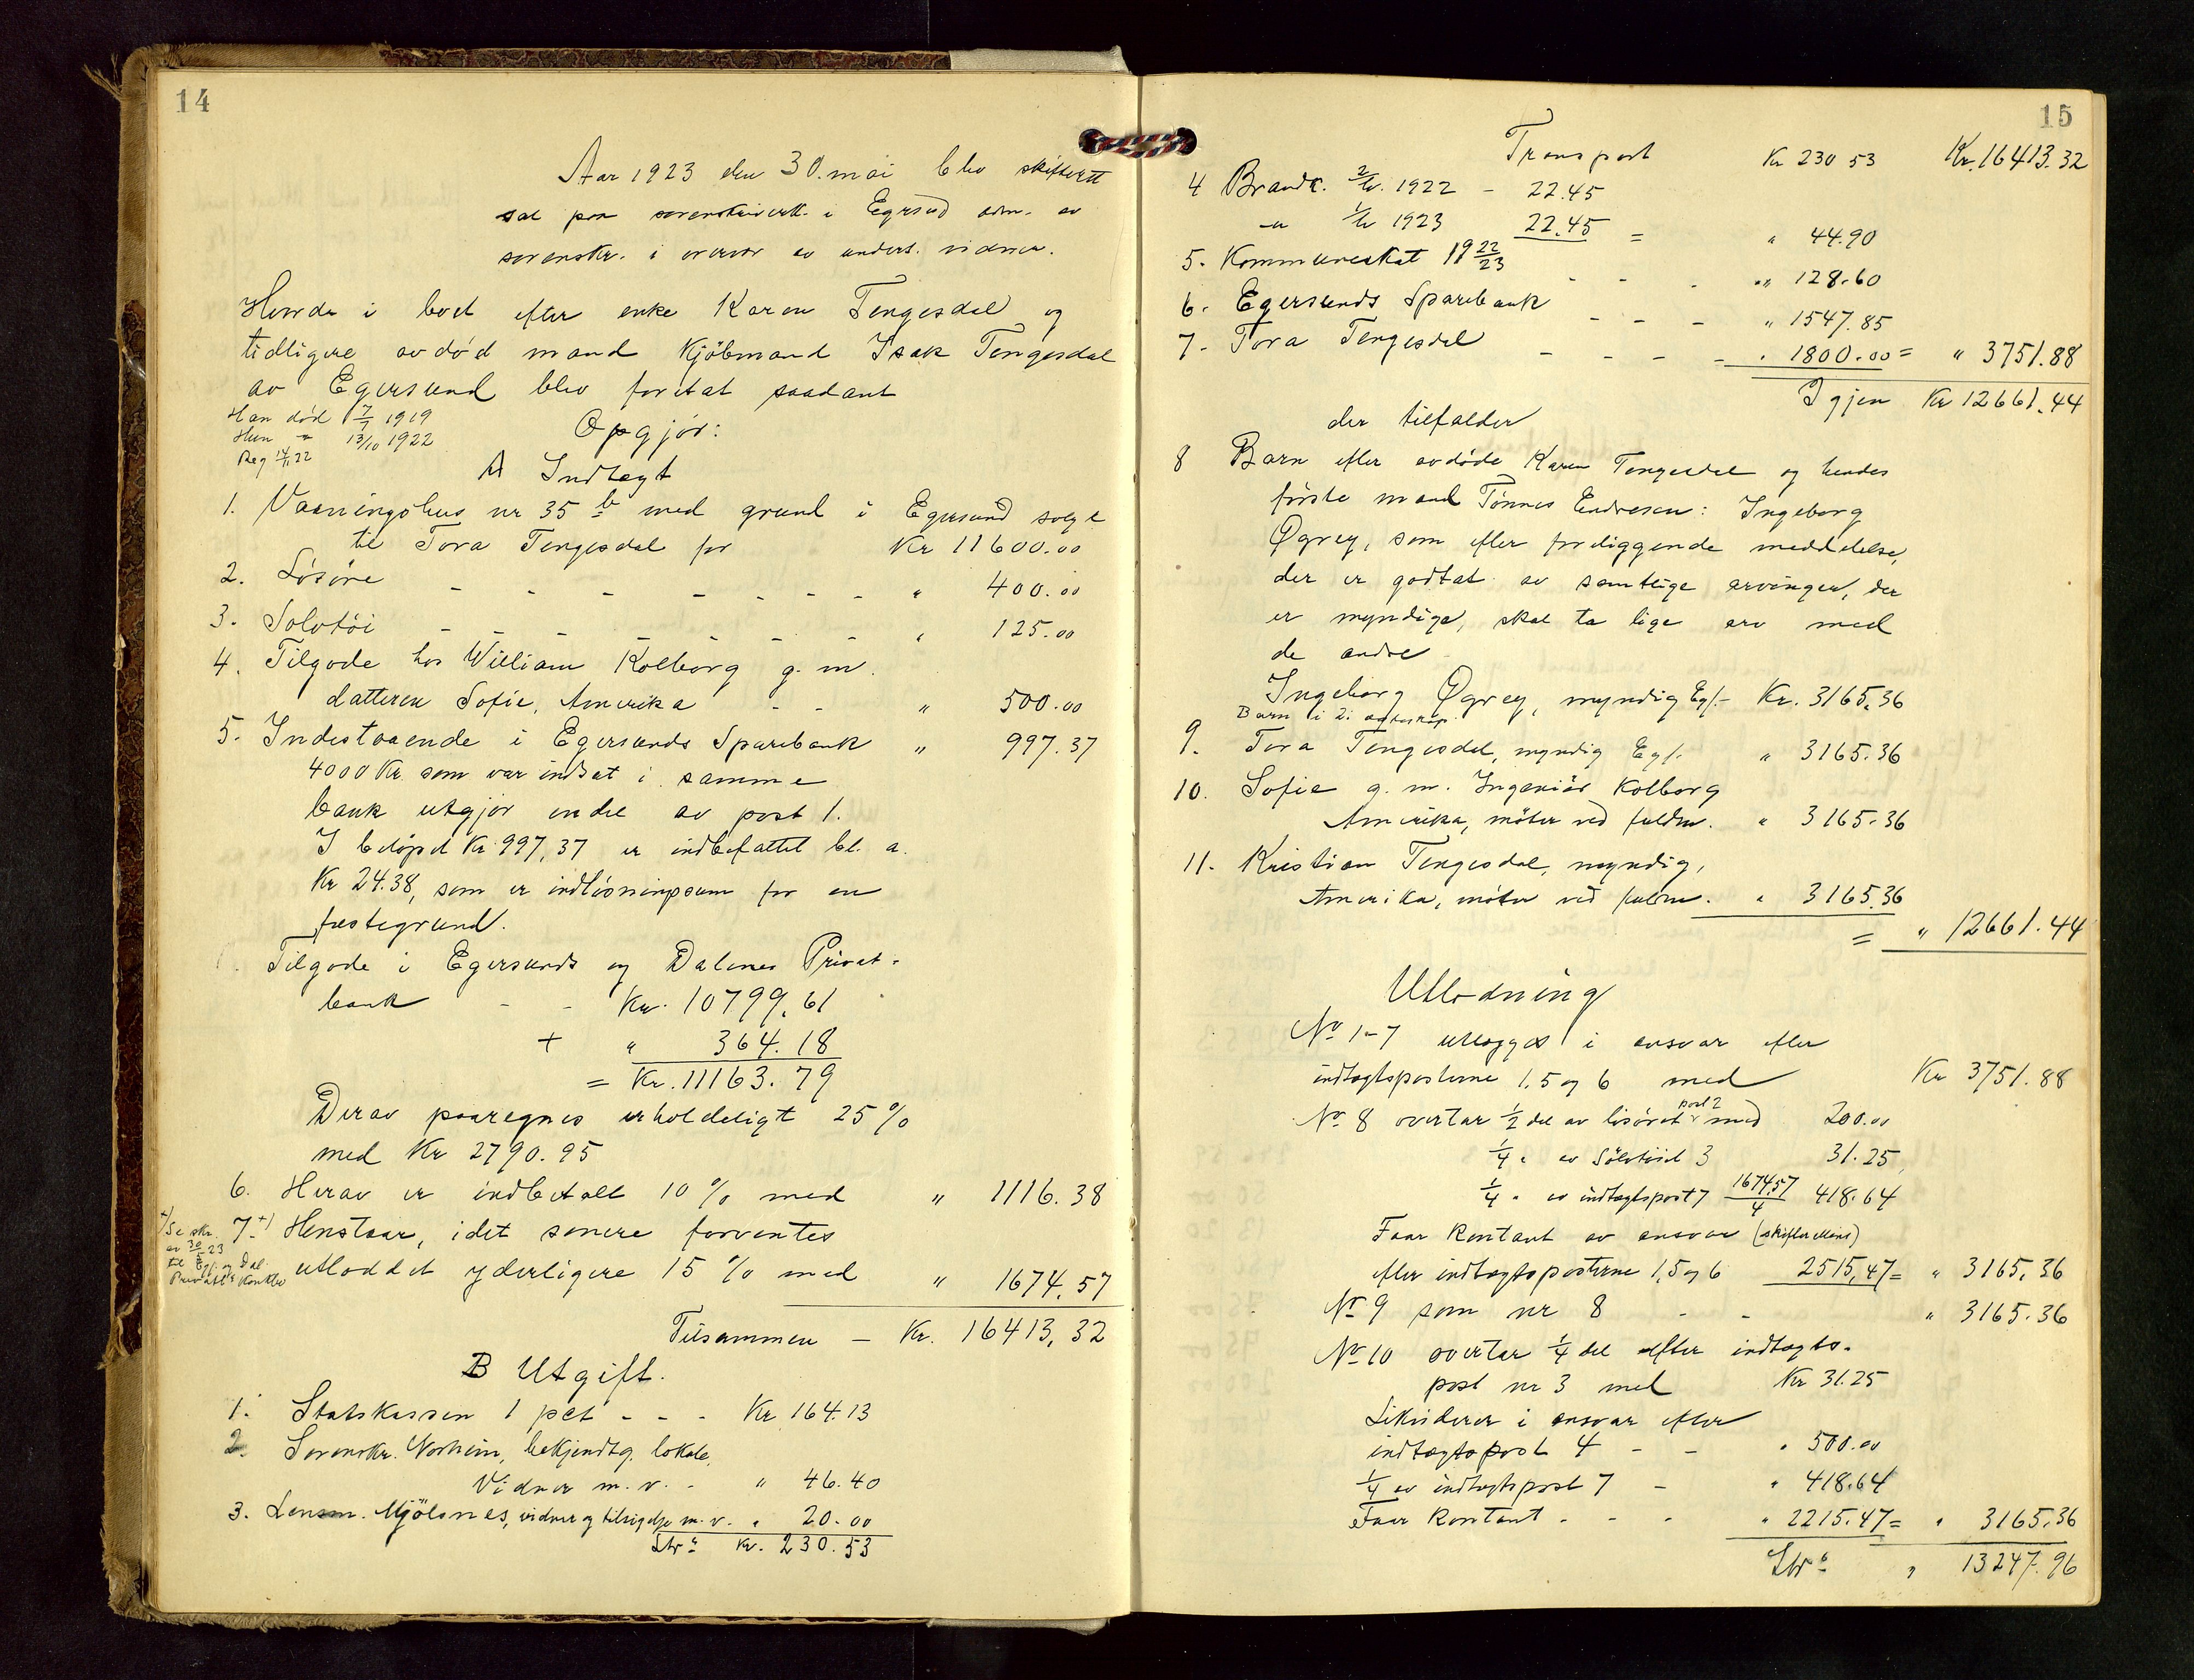 14
Aar 1923 den 30. mai blev skifterett
sat paa sorenskriverk. i Egrsund adm. av
sorenskr. i overvær av unders. vidner.
Hvorda i boet efter enke Karen Tengesdal og
tidligere avdød mand Kjöbmand Isak Tengesdal
av Egersund blev foretat saadant
Han död 7/7 1919
Hun " 13/10 1922
Reg 14/11 22
Opgjör:
A Indtægt
1. Vaaningshus nr 35 b med grund i Egersund solgt
til Tora Tengesdal for Kr 11600.00
2. Lösöre - - - - - - - " 400.00
3. Solvtöi - - - - - - - " 125.00
4. Tilgode hos William Kolberg g. m.
datteren Sofie, Amerika - - " 500.00
5. Indestaaende i Egersunds Sparebank " 997.37
4000 Kr. som var indsat i samme
bank utgjør endel av post 1.
I beløpet Kr 997,37 er indbefattet bl. a.
Kr 24.38, som er indløsningssum for en
festegrund.
Tilgode i Egersunds og Dalenes Privat-
bank - - Kr. 10799,61
+ " 364.18
= Kr. 11163.79
Derav paaregnes erholdeligt 25 %
med Kr 2790.95
6. Herav er indbetalt 10 % med " 1116.38
7. +) Henstaar, idet senere forventes
utloddet yderligere 15 % med " 1674,57
+) Se skr.
av 30/5 23
til Eg. og Dal.
Privatb.s
Tilsammen - Kr. 16413,32
B Utgift.
1. Statskassen 1 pct - - - Kr 164.13
2. Sorenskr. Norheim, bekjendtg. lokale,
Vidner m. v. - " 46.40
3. Lensm. Mjölsnes, vidner og tilsigelse m. v. " 20.00
Ltr: Kr. 230.53
15
Transport Kr 230 53 Kr. 16413.32
4 Brandk. 2/hv. 1922 - 22.45
-" 1/hv 1923 22.45 = " 44.90
5. Kommuneskat 19 22/23 - - - " 128.60
6. Egersunds Sparebank - - - " 1547.85
7. Tora Tengesdal - - - - " 1800.00 = " 3751.88
Igjen Kr 12661.44
der tilfalder
8 Barn efter avdöde Karen Tengesdal og hendes
förste mand Tönnes Endresen: Ingeborg
Øgrey, som efter foreliggende meddelelse,
der er godtat av samtlige arvinger, der
er myndige, skal ta lige arv med
de andre
Ingeborg Øgrey, myndig Eg/.- Kr. 3165,36
Barn i 2. egteskap.
9. Tora Tengesdal, myndig Eg/. " 3165.36
10. Sofie g. m. Ingeniör Kolberg
Amerika, möter ved fuldm. " 3165.36
11. Kristian Tengesdal, myndig,
Amerika, möter ved fuldm. " 3165.36
= " 12661.44
Utlodning
No 1-7 utlægges i ansvar efter
indtægtsposterne 1, 5 og 6 med Kr 3751.88
No 8 overtar 1/2 del av lösöret post 2 med 200.00
1/4 " av Sölvtöiet 3 31.25
1/4 " av indtægtspost 7 1674.57/4 418.64
Faar Kontant av ansvar (skifterettens)
efter indtægtsposterne 1, 5 og 6 2515,47 = " 3165.36
No 9 som nr 8 - - " 3165.36
No 10 overtar 1/4 del efter indtægts-
post nr 3 med Kr 31.25
Likviderer i ansvar efter
indtægtspost 4 - - " 500.00
1/4 av indtægtspost 7 - " 418.64
Faar Kontant - - - " 2215.47 = " 3165.36
Ltr: " 13247.96